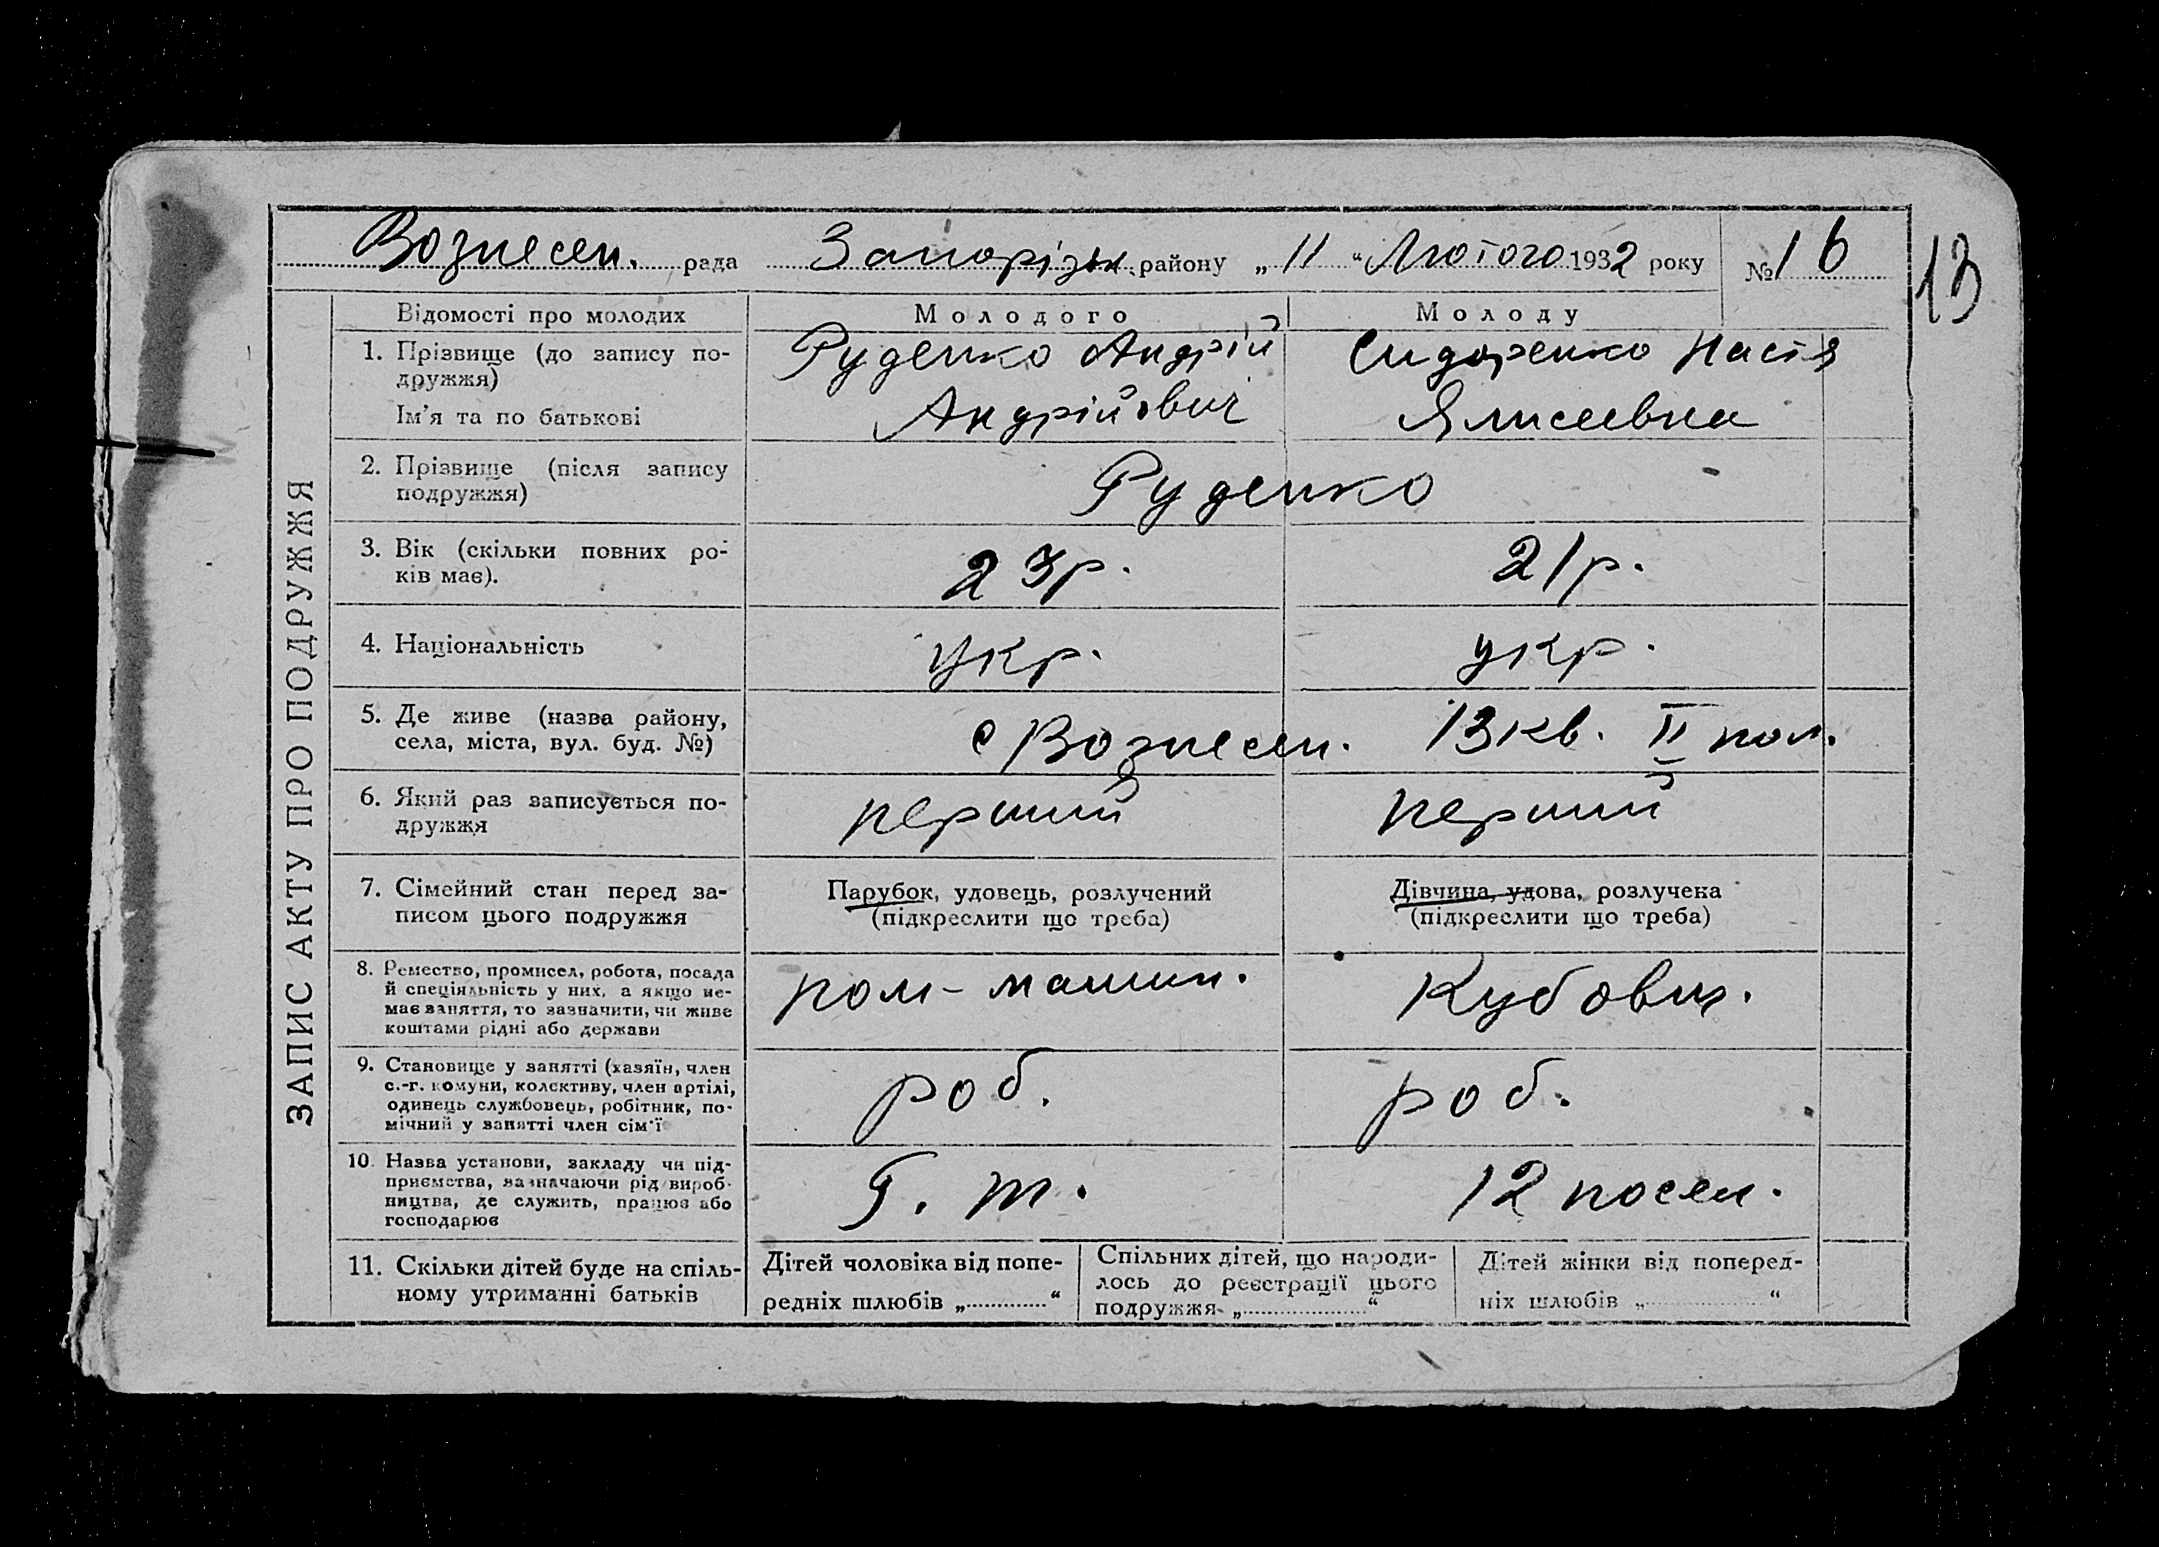 Вознесен. рада Запорізьк. району „ 11 “ Лютого 1932 року № 16
13
ЗАПИС АКТУ ПРО ПОДРУЖЖЯ
Відомості про молодих
Молодого
Молоду
1. Прізвище (до запису по-
дружжя)
Ім'я та по батькові
Руденко Андрій
Андрійович
Сидоренко Настя
Ялисеевна
2. Прізвище (після запису
подружжя)
Руденко
3. Вік (скільки повних ро-
ків має).
23р.
21р.
4. Національність
укр.
укр.
5. Де живе (назва району,
села, міста, вул. буд. №)
с Вознесен. 13 кв. II пол.
6. Який раз записується по-
дружжя
перший
перший
7. Сімейний стан перед за-
писом цього подружжя
Парубок, удовець, розлучений
(підкреслити що треба)
Дівчина, удова, розлучена
(підкреслити що треба)
8. Ремество, промисел, робота, посада
й спеціяльність у них, а якщо не-
має заняття, то зазначити, чи живе
коштами рідні або держави
пом-машин.
Кубовщ.
9. Становище у занятті (хазяїн, член
с.-г. комуни, колективу, член артілі,
одинець службовець, робітник, по-
мічний у занятті член сім'ї
роб.
роб.
10. Назва установи, закладу чи під-
приємства, зазначаючи рід вироб-
ництва, де служить, працює або
господарює
Т.
12 посел.
11. Скільки дітей буде на спіль-
ному утриманні батьків
Дітей чоловіка від попе-
редніх шлюбів „.............“
Спільних дітей, що народи-
лось до реєстрації цього
подружжя „....................“
Дітей жінки від поперед-
ніх шлюбів „....................“